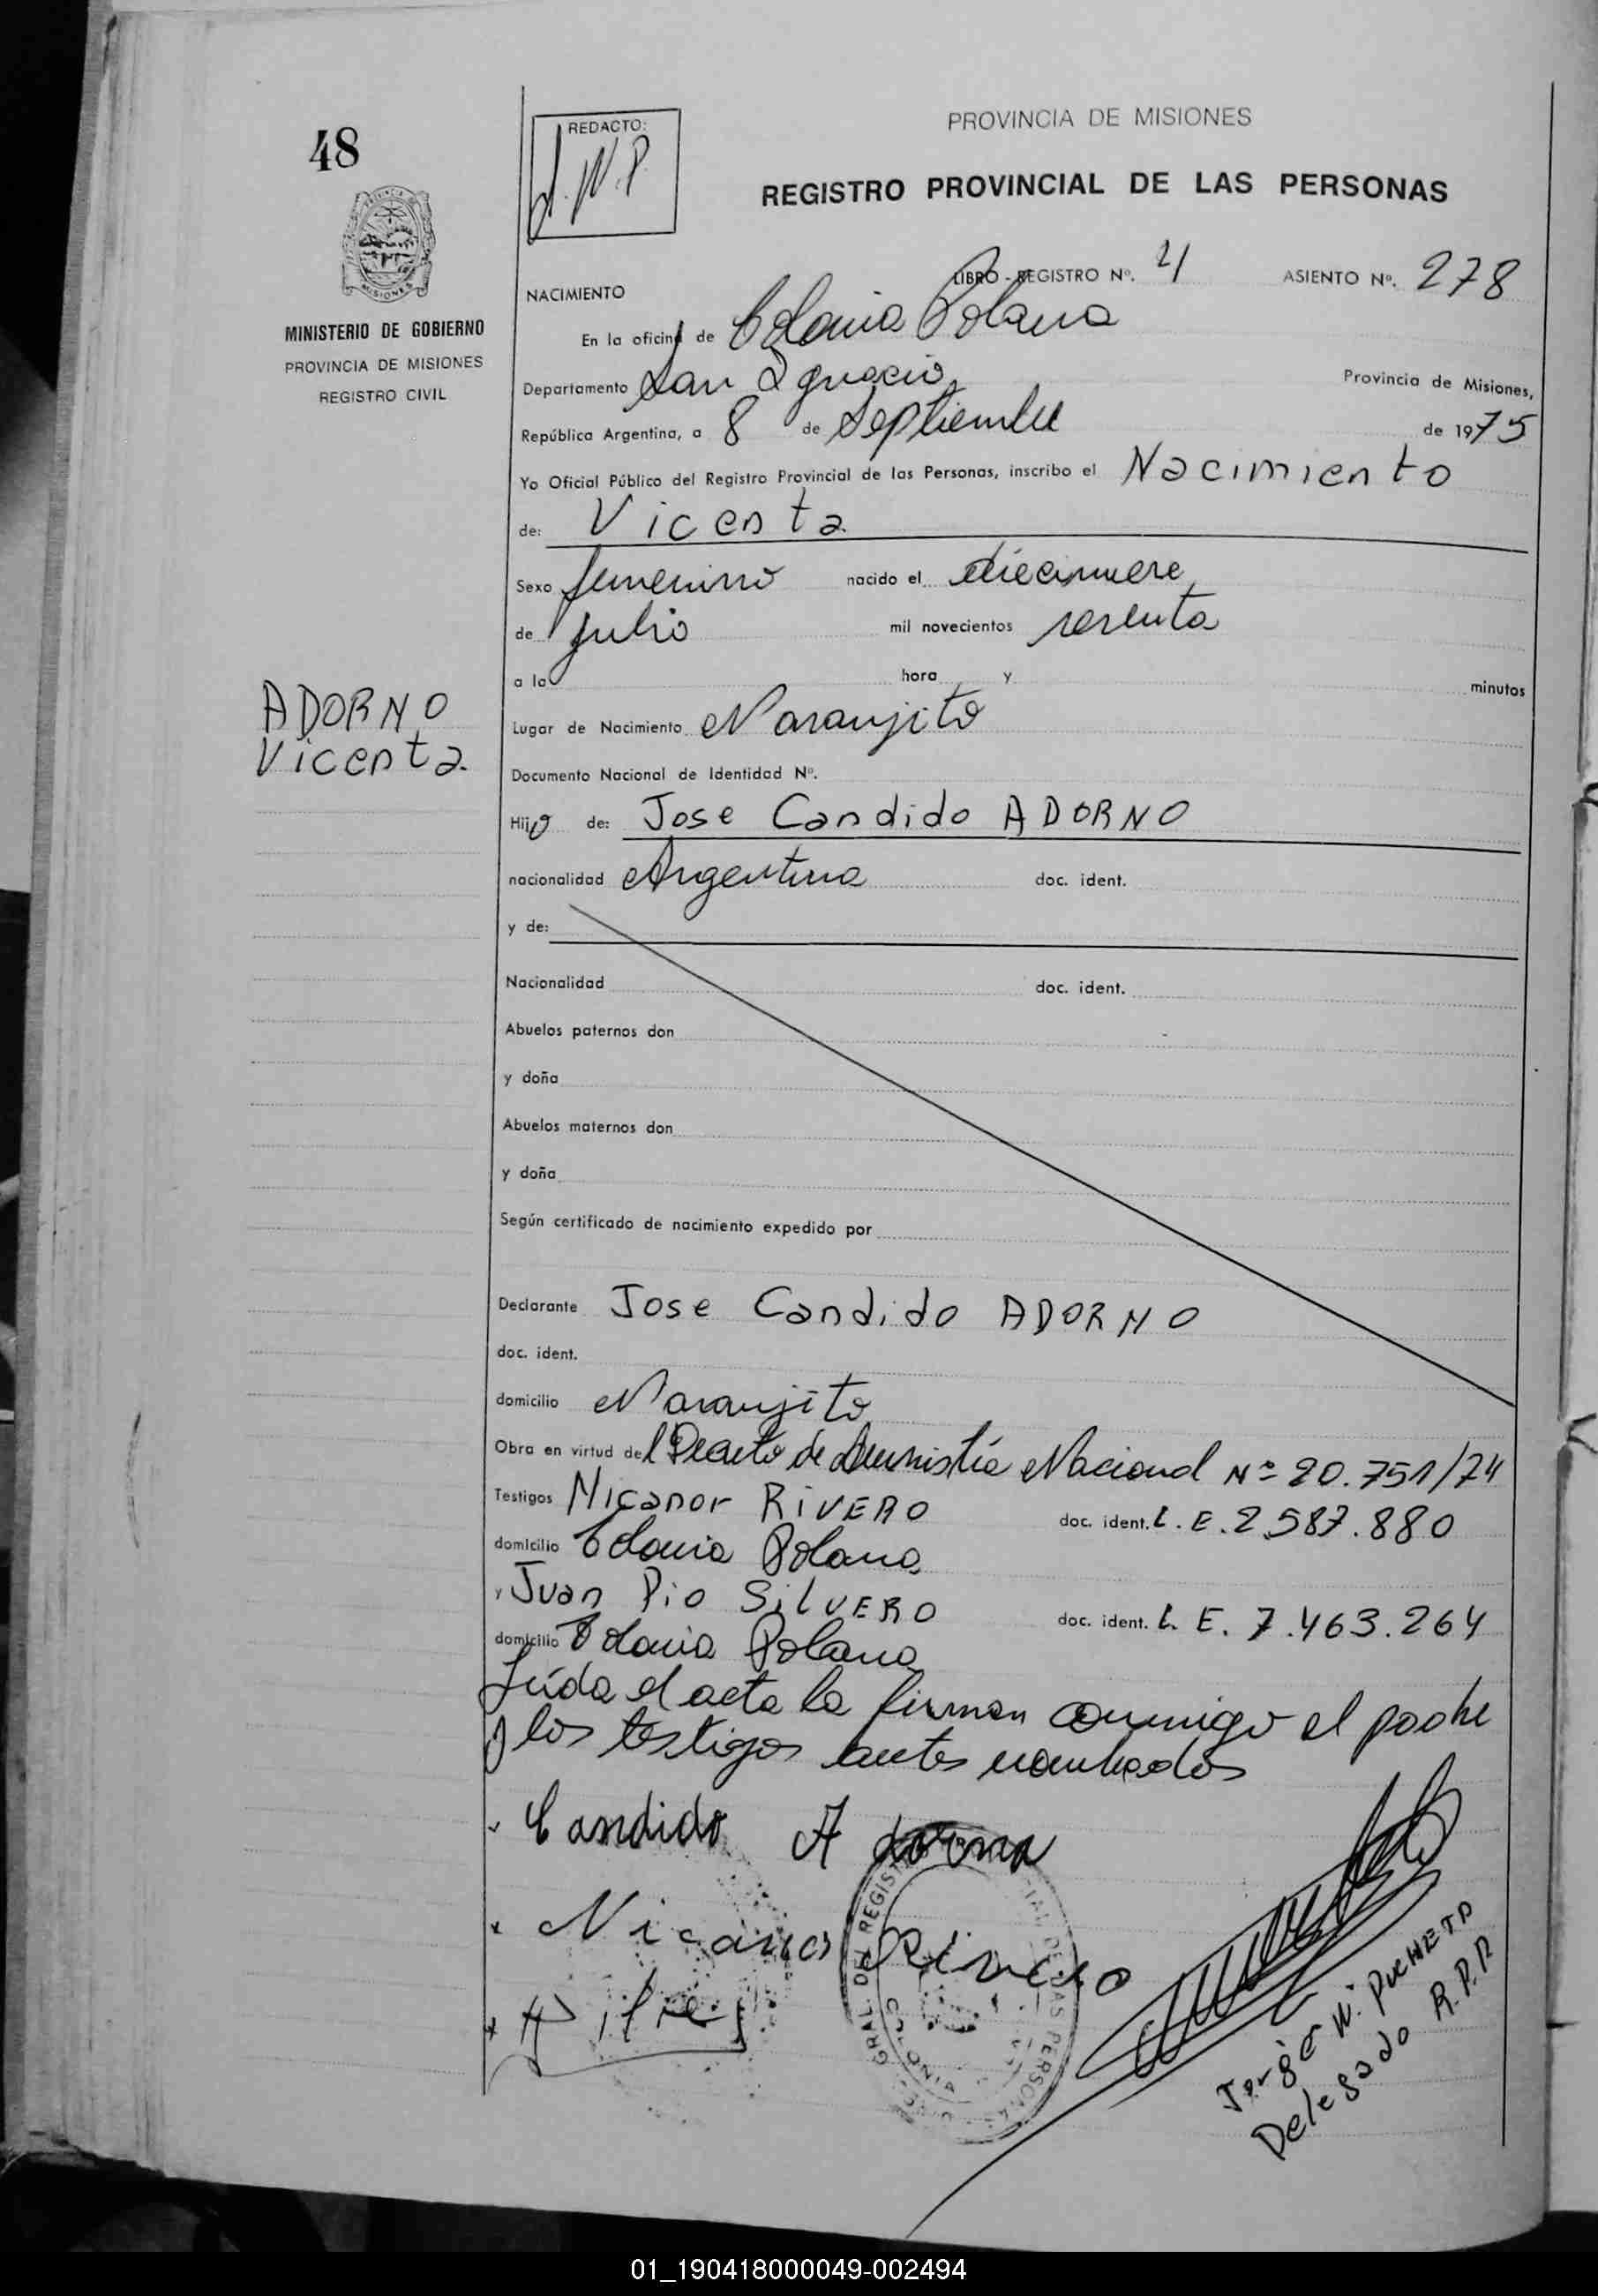 48
REDACTO:
J.W.P.
PROVINCIA DE MISIONES
REGISTRO PROVINCIAL DE LAS PERSONAS
MISIONES
MINISTERIO DE GOBIERNO
PROVINCIA DE MISIONES
REGISTRO CIVIL
LIBRO - REGISTRO Nº. 4 ASIENTO Nº. 278
NACIMIENTO
En la oficina de Colonia Polana
Departamento San Ignacio Provincia de Misiones,
República Argentina, a 8 de Septiembre de 1975
Yo Oficial Público del Registro Provincial de las Personas, inscribo el Nacimiento
de: Vicenta
Sexo femenino nacido el diecinueve
de Julio mil novecientos sesenta
a la hora y minutos
ADORNO
Vicenta
Lugar de Nacimiento Naranjito
Documento Nacional de Identidad Nº.
Hijo de: Jose Candido ADORNO
nacionalidad Argentina doc. ident.
y de:
Nacionalidad doc. ident.
Abuelos paternos don
y doña
Abuelos maternos don
y doña
Según certificado de nacimiento expedido por
Declarante Jose Candido ADORNO
doc. ident.
domicilio Naranjito
Obra en virtud del Decreto de Amnistía Nacional Nº 20.751/74
Testigos Nicanor RIVERO doc. ident. L.E. 2.587.880
domicilio Colonia Polana
y Juan Pio SILVERO doc. ident. L.E. 7.463.264
domicilio Colonia Polana
Leída el acta la firman conmigo el padre
y los testigos antes nombrados
Candido Adorno
Nicanor Rivero
Jorge W.
Delegado R.P.P.
GRAL. DEL REGISTRO DE LAS PERSONAS
01_190418000049-002494